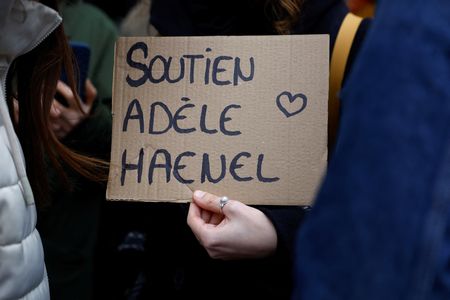 SOUTIEN
ADÈLE
HAENEL